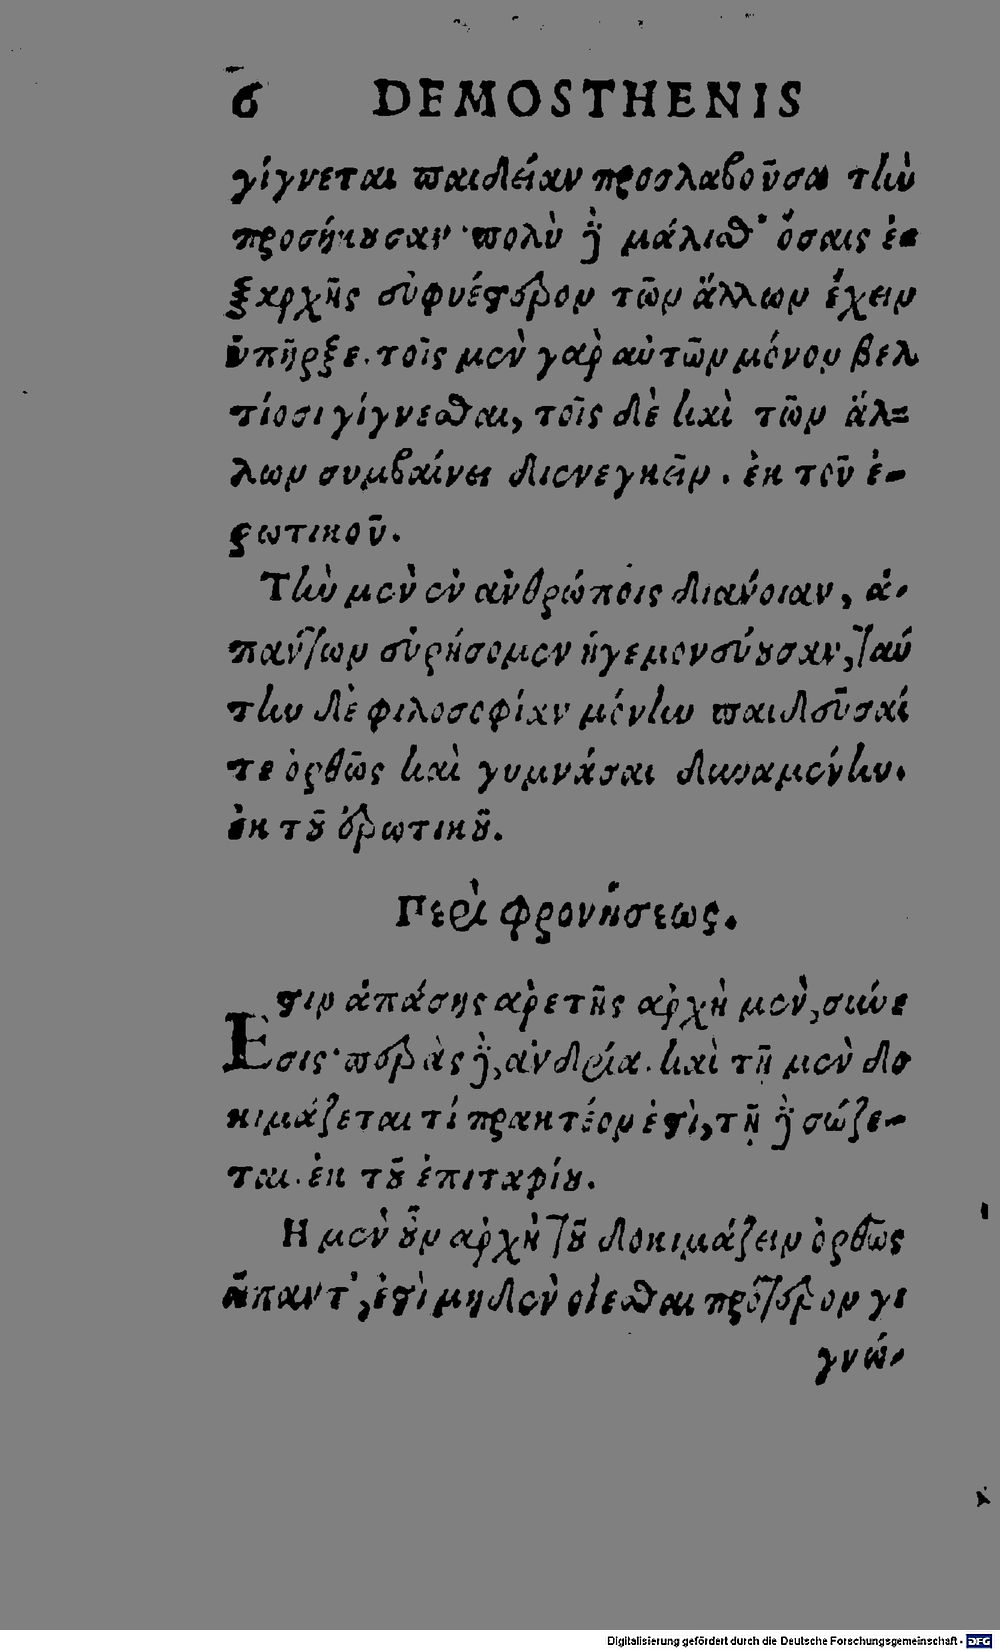 6 DEMOSTHENIS
γίγνεται παιδείαν προσλαβοῦσα τὴν
προσήκουσαν· πολὺ δὲ μάλισθ' ὅσαις ἐ-
ξαρχῆς εὐφυέστερον τῶν ἄλλων ἔχειν
ὑπῆρξε. τοῖς μὲν γὰρ αὐτῶν μόνον βελ
τίοσι γίγνεσθαι, τοῖς δὲ καὶ τῶν ἄλ-
λων συμβαίνει διενεγκεῖν. ἐκ τοῦ ἐ-
ρωτικοῦ.
Τὴν μὲν ἐν ἀνθρώποις διάνοιαν, ἁ-
πάντων εὑρήσομεν ἡγεμονεύουσαν, ταύ
την δὲ φιλοσοφίαν μόνην παιδεῦσαί
τε ὀρθῶς καὶ γυμνάσαι δυναμένην.
ἐκ τοῦ ἐρωτικοῦ.
Περὶ φρονήσεως.
Εστιν ἁπάσης ἀρετῆς ἀρχὴ μὲν, σύνε
σις· πέρας δὲ, ἀνδρία. καὶ τῇ μὲν δο
κιμάζεται τί πρακτέον ἐστὶ, τῇ δὲ σώζε-
ται. ἐκ τοῦ ἐπιταφίου.
Η μὲν οὖν ἀρχὴ τοῦ δοκιμάζειν ὀρθῶς
ἅπαντ', ἐστὶ μηδὲν οἴεσθαι πρότερον γι
γνώ-
Digitalisierung gefördert durch die Deutsche Forschungsgemeinschaft - DFG